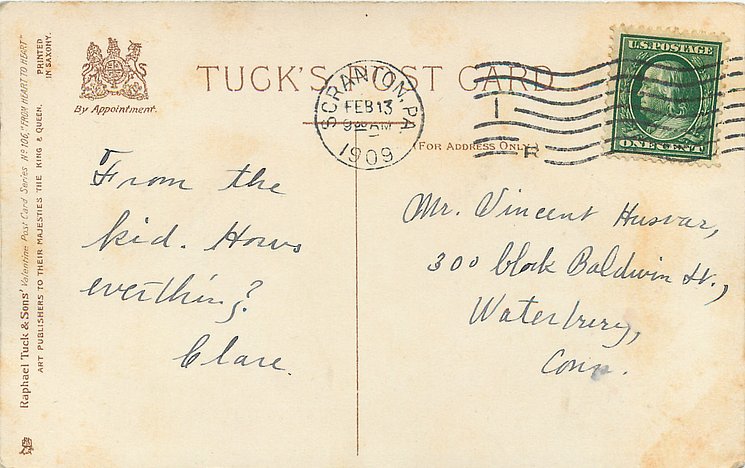 Raphael Tuck & Sons' Valentine Post Card Series No 106, "FROM HEART TO HEART"
ART PUBLISHERS TO THEIR MAJESTIES THE KING & QUEEN.
PRINTED
IN SAXONY.
By Appointment.
TUCK'S POST CARD
SCRANTON, PA
FEB 13
AM
1909
1
R
U.S. POSTAGE
ONE CENT
(FOR ADDRESS ONLY.)
From the
kid. Hows
everthing?
Clare.
Mr. Vincent Husvar,
300 block Baldwin St.,
Waterbury,
Conn.